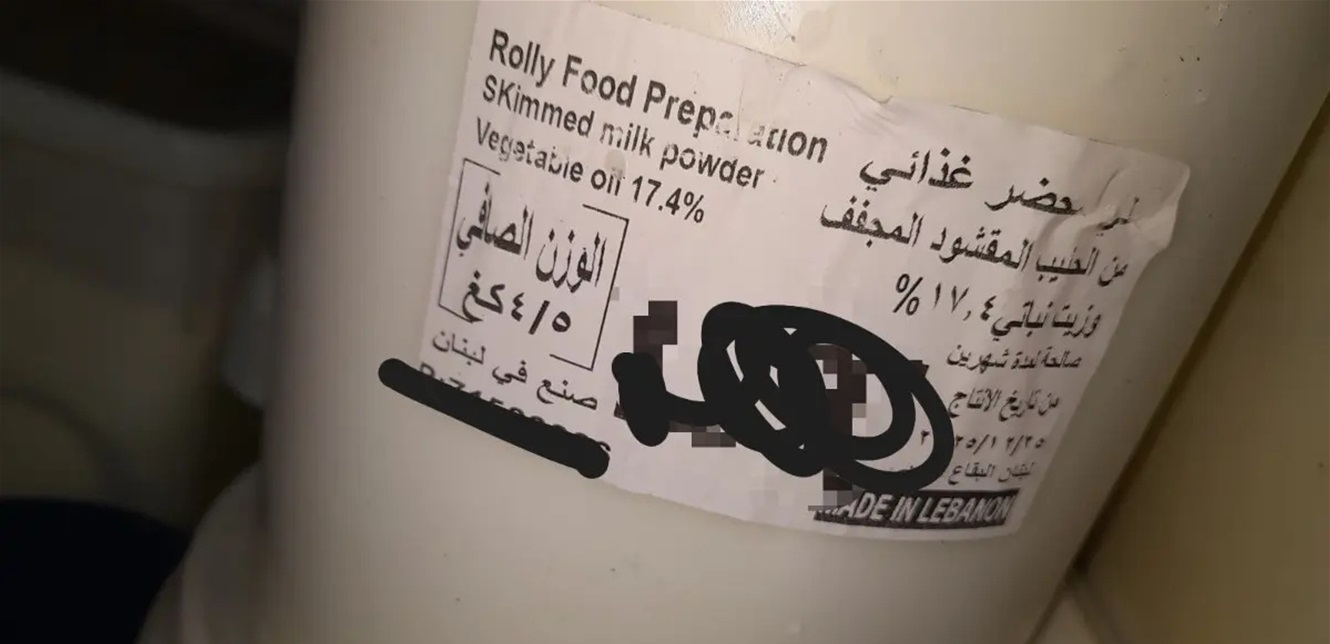 Rolly Food Preparation
SKimmed milk powder
Vegetable oil 17.4%
الوزن الصافي
٤/٥ كغ
صنع في لبنان
غذائي
من الحليب المقشود المجفف
وزيت نباتي ١٧,٤ %
صالحة لمدة شهرين
من تاريخ الانتاج
لبنان البقاع
MADE IN LEBANON